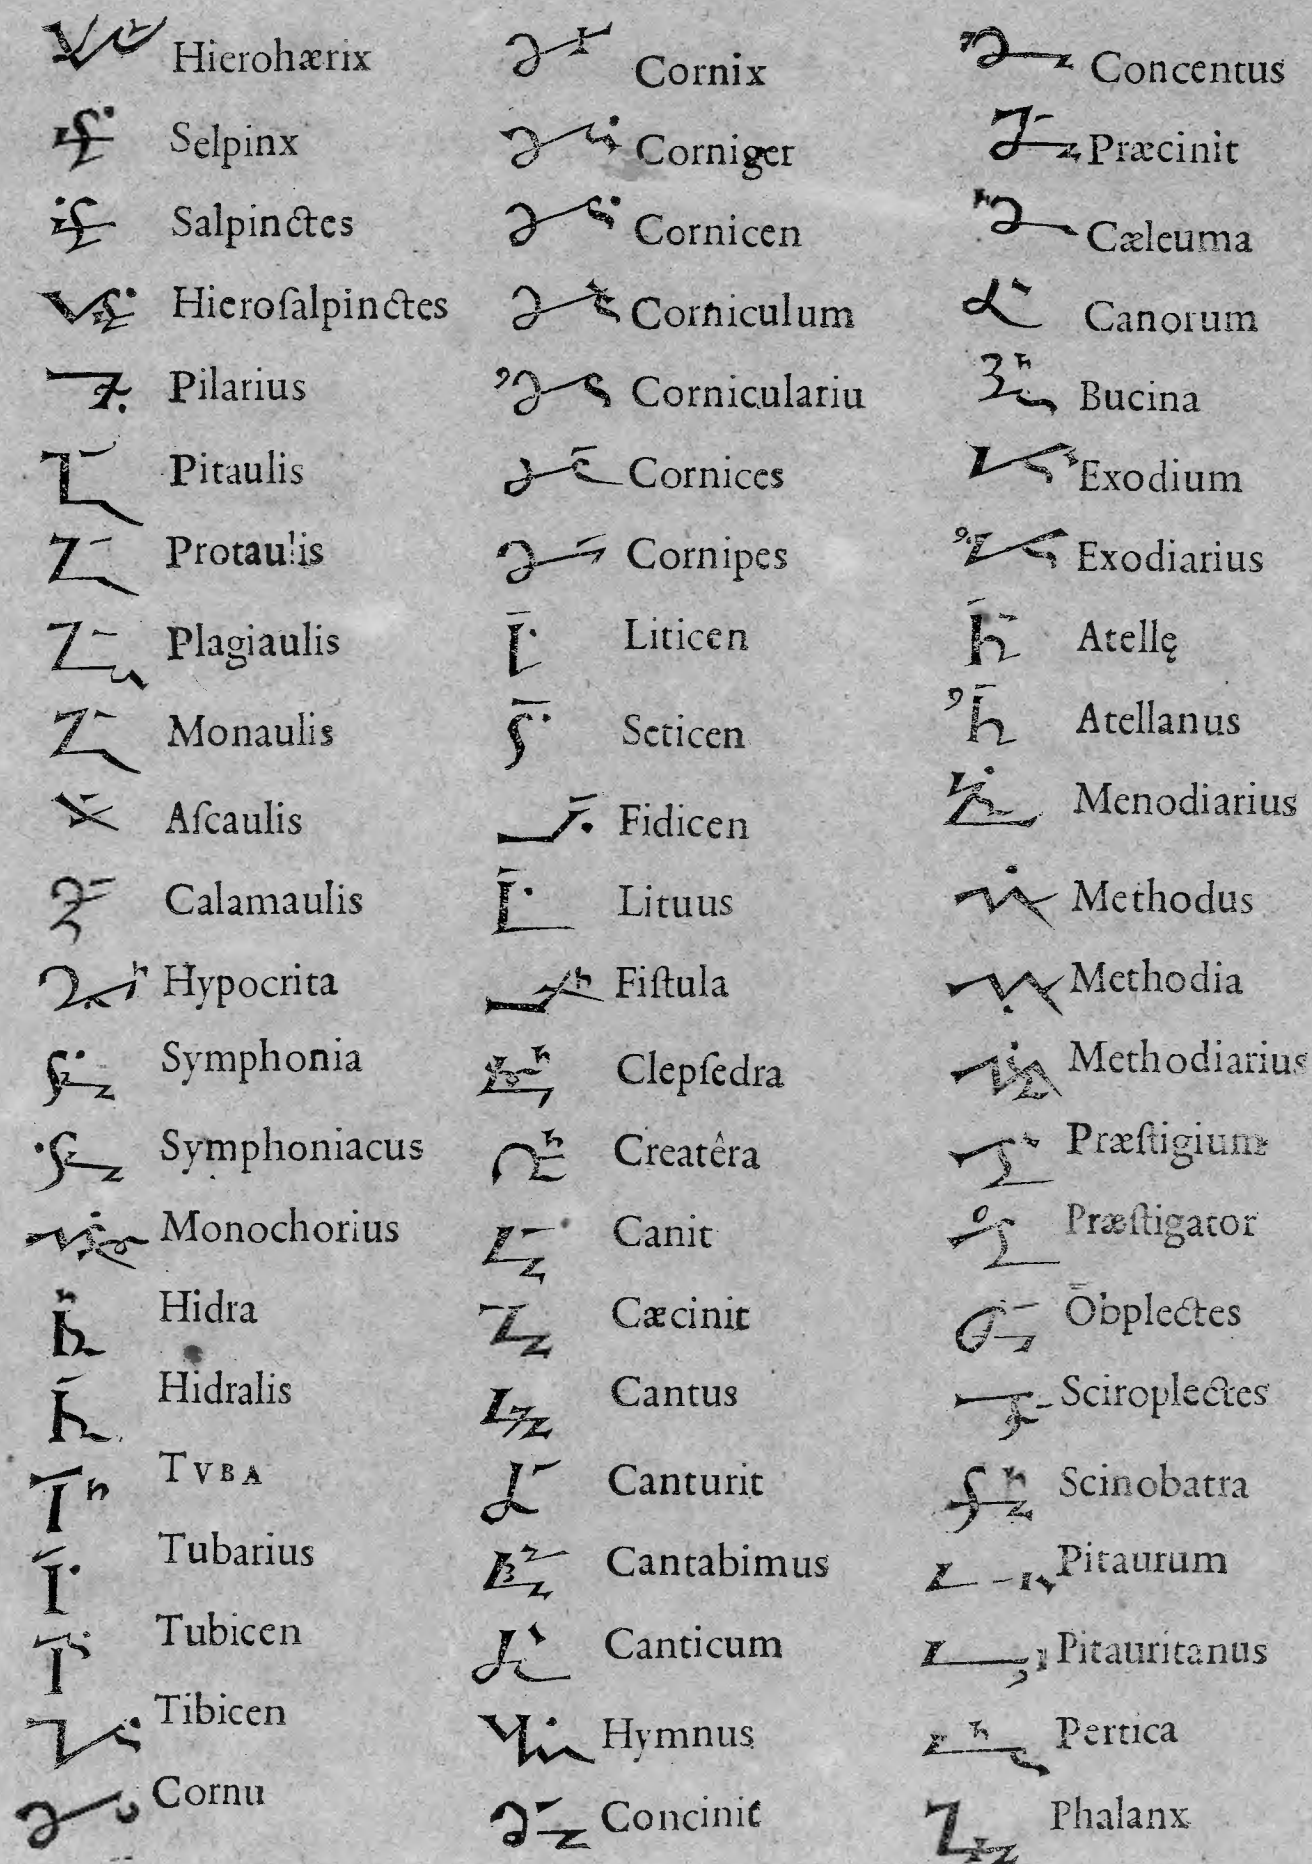 Hierohærix
Selpinx
Salpinctes
Hieroſalpinctes
Pilarius
Pitaulis
Protaulis
Plagiaulis
Monaulis
Aſcaulis
Calamaulis
Hypocrita
Symphonia
Symphoniacus
Monochorius
Hidra
Hidralis
TVBA
Tubarius
Tubicen
Tibicen
Cornu
Cornix
Corniger
Cornicen
Corniculum
Corniculariu
Cornices
Cornipes
Liticen
Seticen
Fidicen
Lituus
Fiſtula
Clepſedra
Creatêra
Canit
Cæcinit
Cantus
Canturit
Cantabimus
Canticum
Hymnus
Concinit
Concentus
Præcinit
Cæleuma
Canorum
Bucina
Exodium
Exodiarius
Atellę
Atellanus
Menodiarius
Methodus
Methodia
Methodiarius
Præſtigium
Præſtigator
Obplectes
Sciroplectes
Scinobatra
Pitaurum
Pitauritanus
Pertica
Phalanx